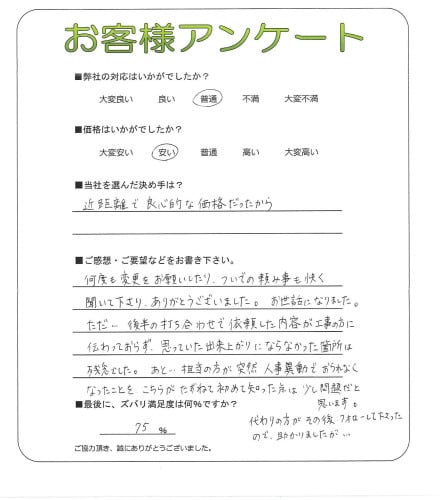 お客様アンケート
■弊社の対応はいかがでしたか？
大変良い 良い 普通 不満 大変不満
■価格はいかがでしたか？
大変安い 安い 普通 高い 大変高い
■当社を選んだ決め手は？
近距離で良心的な価格だったから
■ご感想・ご要望などをお書き下さい。
何度も変更をお願いしたり、ついでの頼み事も快く
聞いて下さり、ありがとうございました。お世話になりました。
ただ… 後半の打ち合わせで依頼した内容が工事の方に
伝わっておらず、思っていた出来上がりにならなかった箇所は
残念でした。あと… 担当の方が突然 人事異動でおられなく
なったことを、こちらがたずねて初めて知った点は少し問題だと
思います。
■最後に、ズバリ満足度は何％ですか？
75 ％
代わりの方がその後フォローして下さった
ので、助かりましたが…
ご協力頂き、誠にありがとうございました。